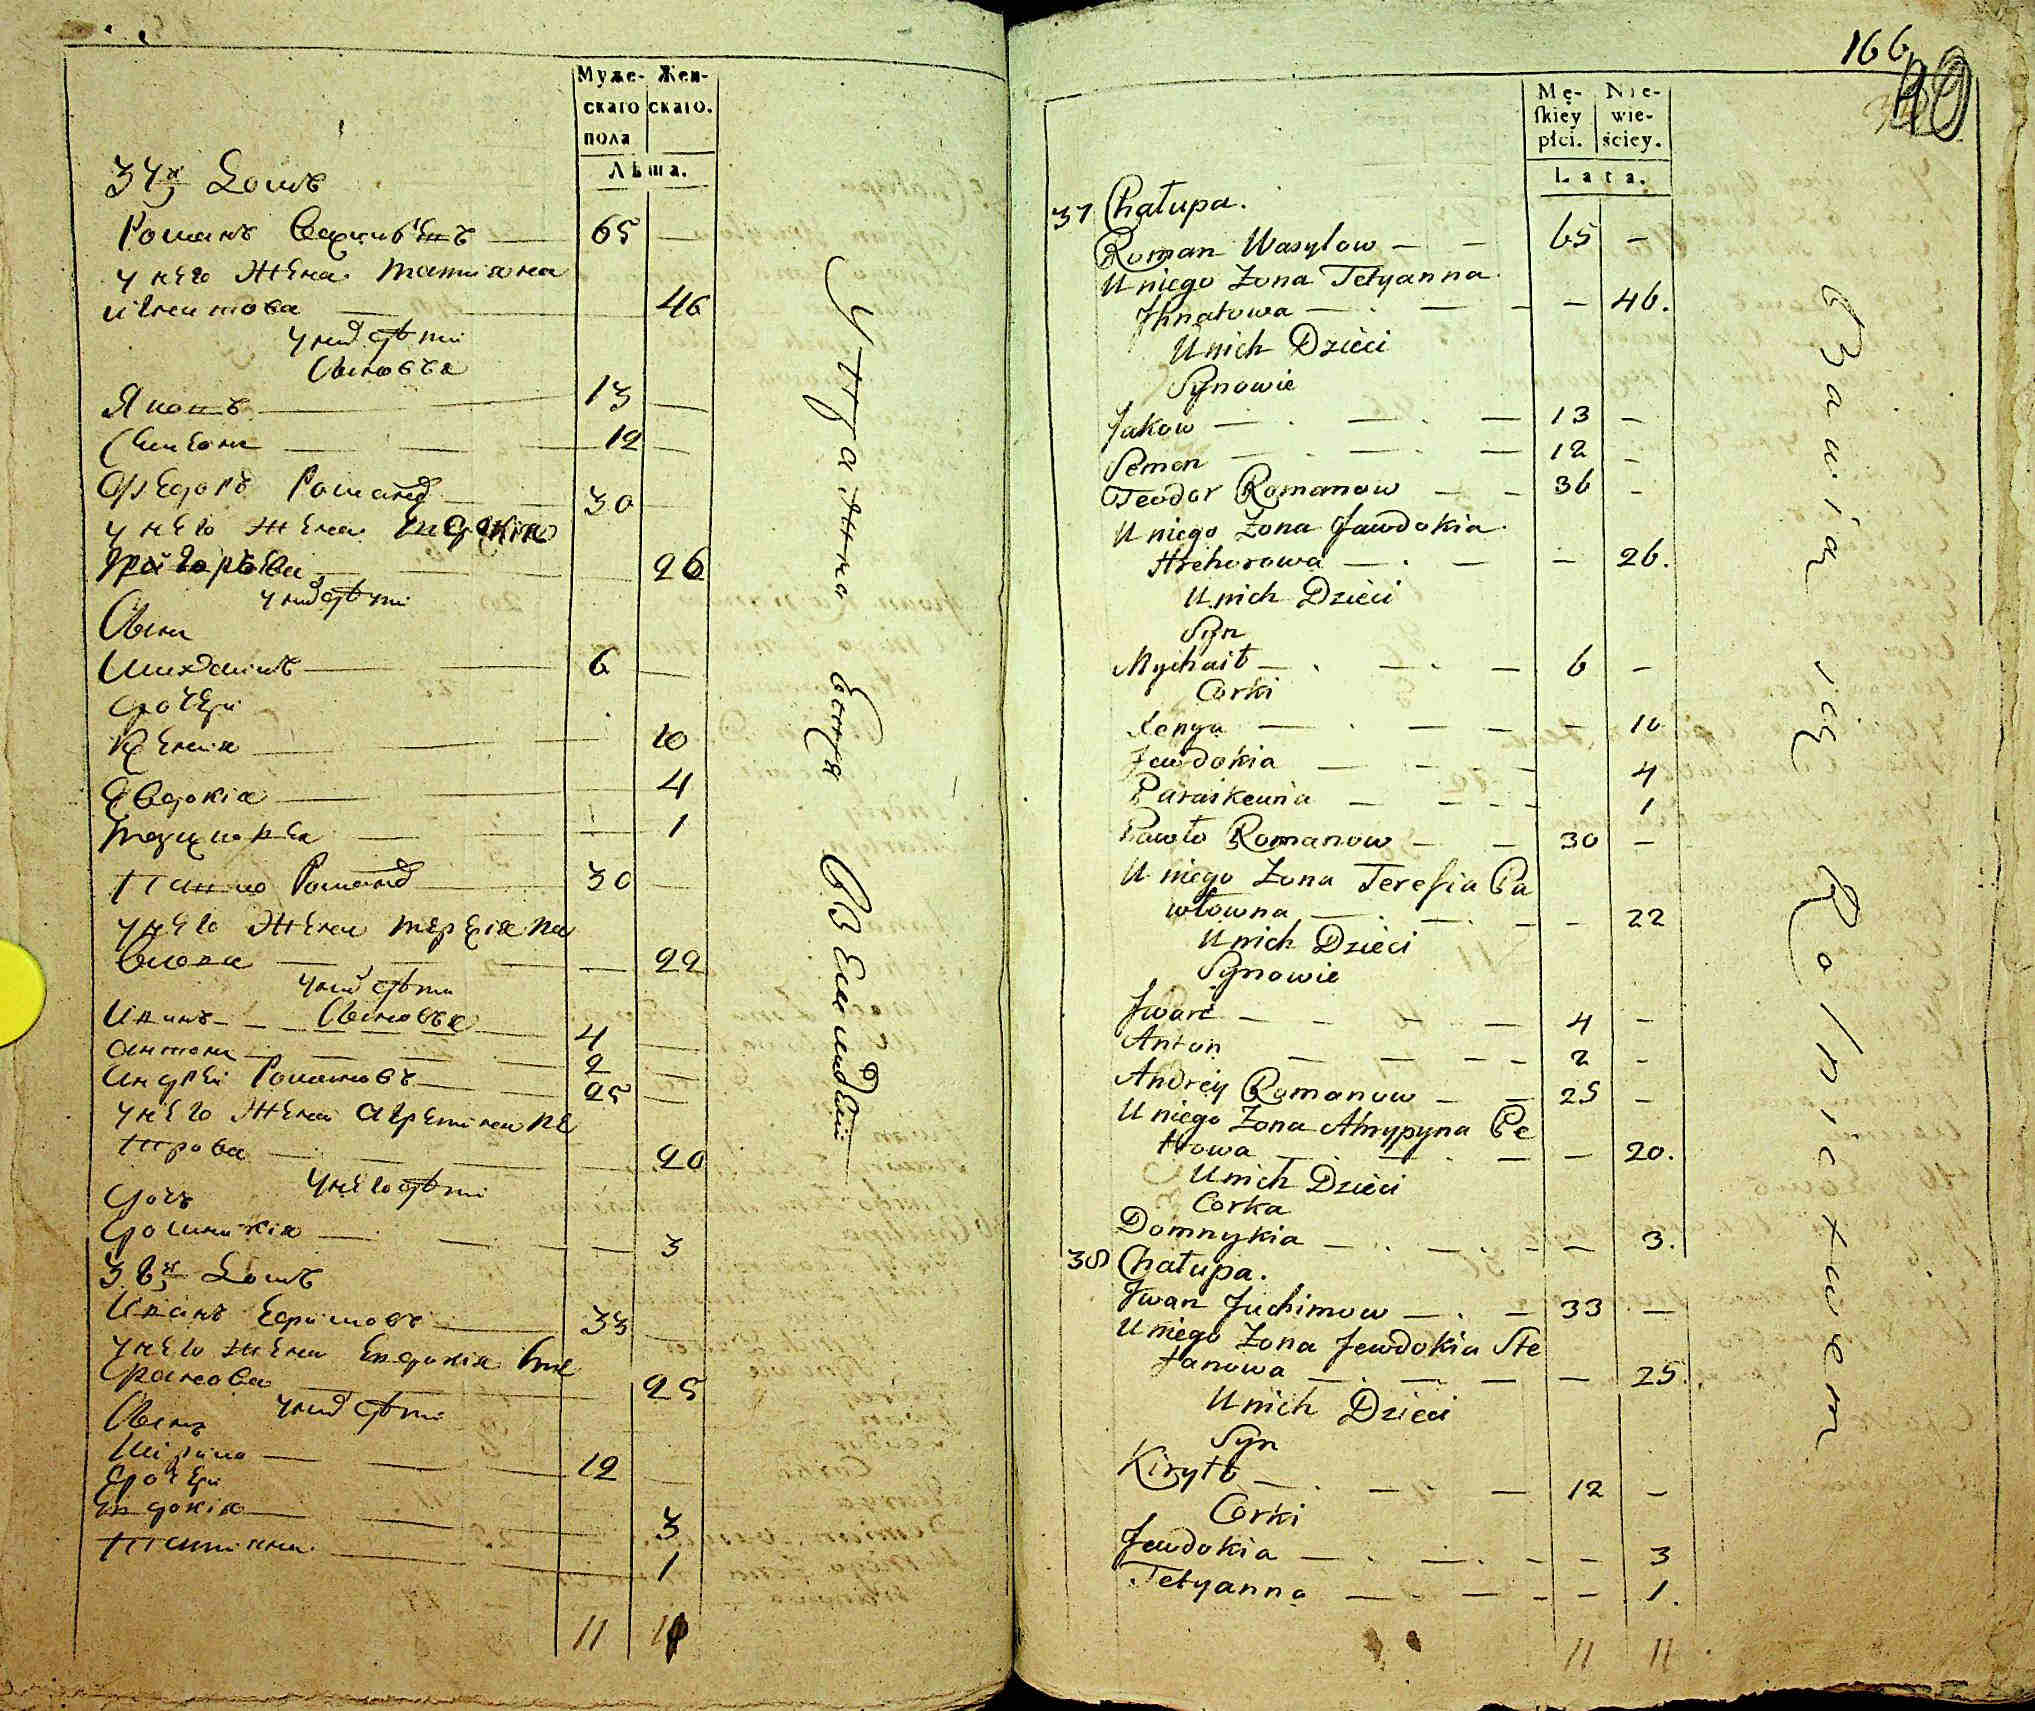 Муже- Жен-
скаго скаго.
пола
Лѣта.
37я Домъ
Романъ Васильевъ — 65 —
у него жена татіяна
игнатова — 46
у них дѣти
Сыновья
Яковъ — 13 —
Симеонъ — 12 —
Ѳедоръ Романов — 30 —
у него жена Евдокія
Григорьева — 26
у них дѣти
Сынъ
Михаилъ — 6 —
дочери
Ксенія — 10
Евдокія — 4
— 1
Павло Романов — 30 —
у него жена терезія па
влова — 22
у них дѣти
Иванъ — Сыновья — 4 —
антонъ — 2 —
андрей Романовъ — 25 —
у него жена агрепина пе
трова — 20
у него дѣти
дочь
доминикія — 3
38я Домъ
Иванъ Ефимовъ — 33 —
у него жена Евдокія Сте
фанова — 25
Сынъ у них дѣти
Кирило — 12 —
дочери
Евдокія — 3
татіяна — 1
11 11
У них заняты всѣ землею
166
40
Mę- Nie-
ſkiey wie-
płci. ściey.
Lata.
37 Chałupa.
Roman Wasylow — — 65 —
U niego Żona Tetyanna
Jhnatowa — . — — — 46.
U nich Dzieci
Synowie
Jakow — . — . — 13 —
Semen — . — . — 12 —
Teodor Romanow — — 36 —
U niego Żona Jawdokia
Hrehorowa — . — — 26.
U nich Dzieci
Syn
Mychaił — . — . — 6 —
Corki
Xenya — . — — — 10
Jewdokia — — — 4
Paraskewia — — - - 1
Pawło Romanow — — 30 —
U niego Żona Tereſia Pa
włowna — . — . — — 22
U nich Dzieci
Synowie
Jwan — — — — 4 —
Anton — — — - 2 —
Andrey Romanow — — 25 —
U niego Żona Ahrypyna Pe
trowa — . — . — — 20.
U nich Dzieci
Corka
Domnykia — . — . - — 3.
38 Chałupa.
Jwan Juchimow — . — 33 —
U niego Żona Jewdokia Ste
fanowa — . — . — — 25.
U nich Dzieci
Syn
Kiryło — . — — 12 —
Corki
Jewdokia — . — . - - 3
Tetyanna — . — - - - 1.
11 11
Bawią się Rolnictwem